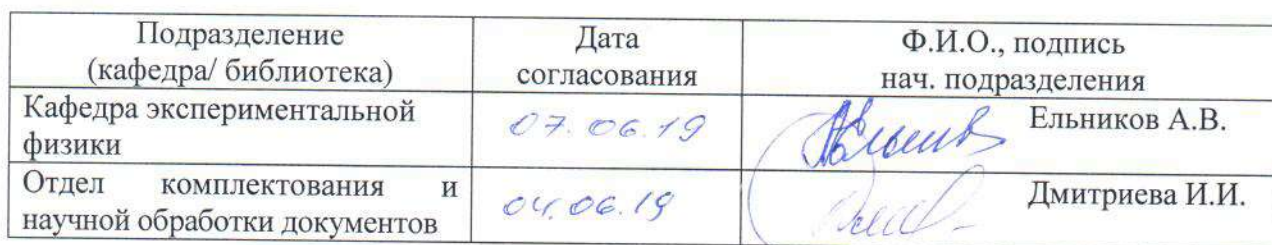 Подразделение
(кафедра/ библиотека)
Дата
согласования
Ф.И.О., подпись
нач. подразделения
Кафедра экспериментальной
физики
07.06.19
Ельников А.В.
Отдел комплектования и
научной обработки документов
04.06.19
Дмитриева И.И.